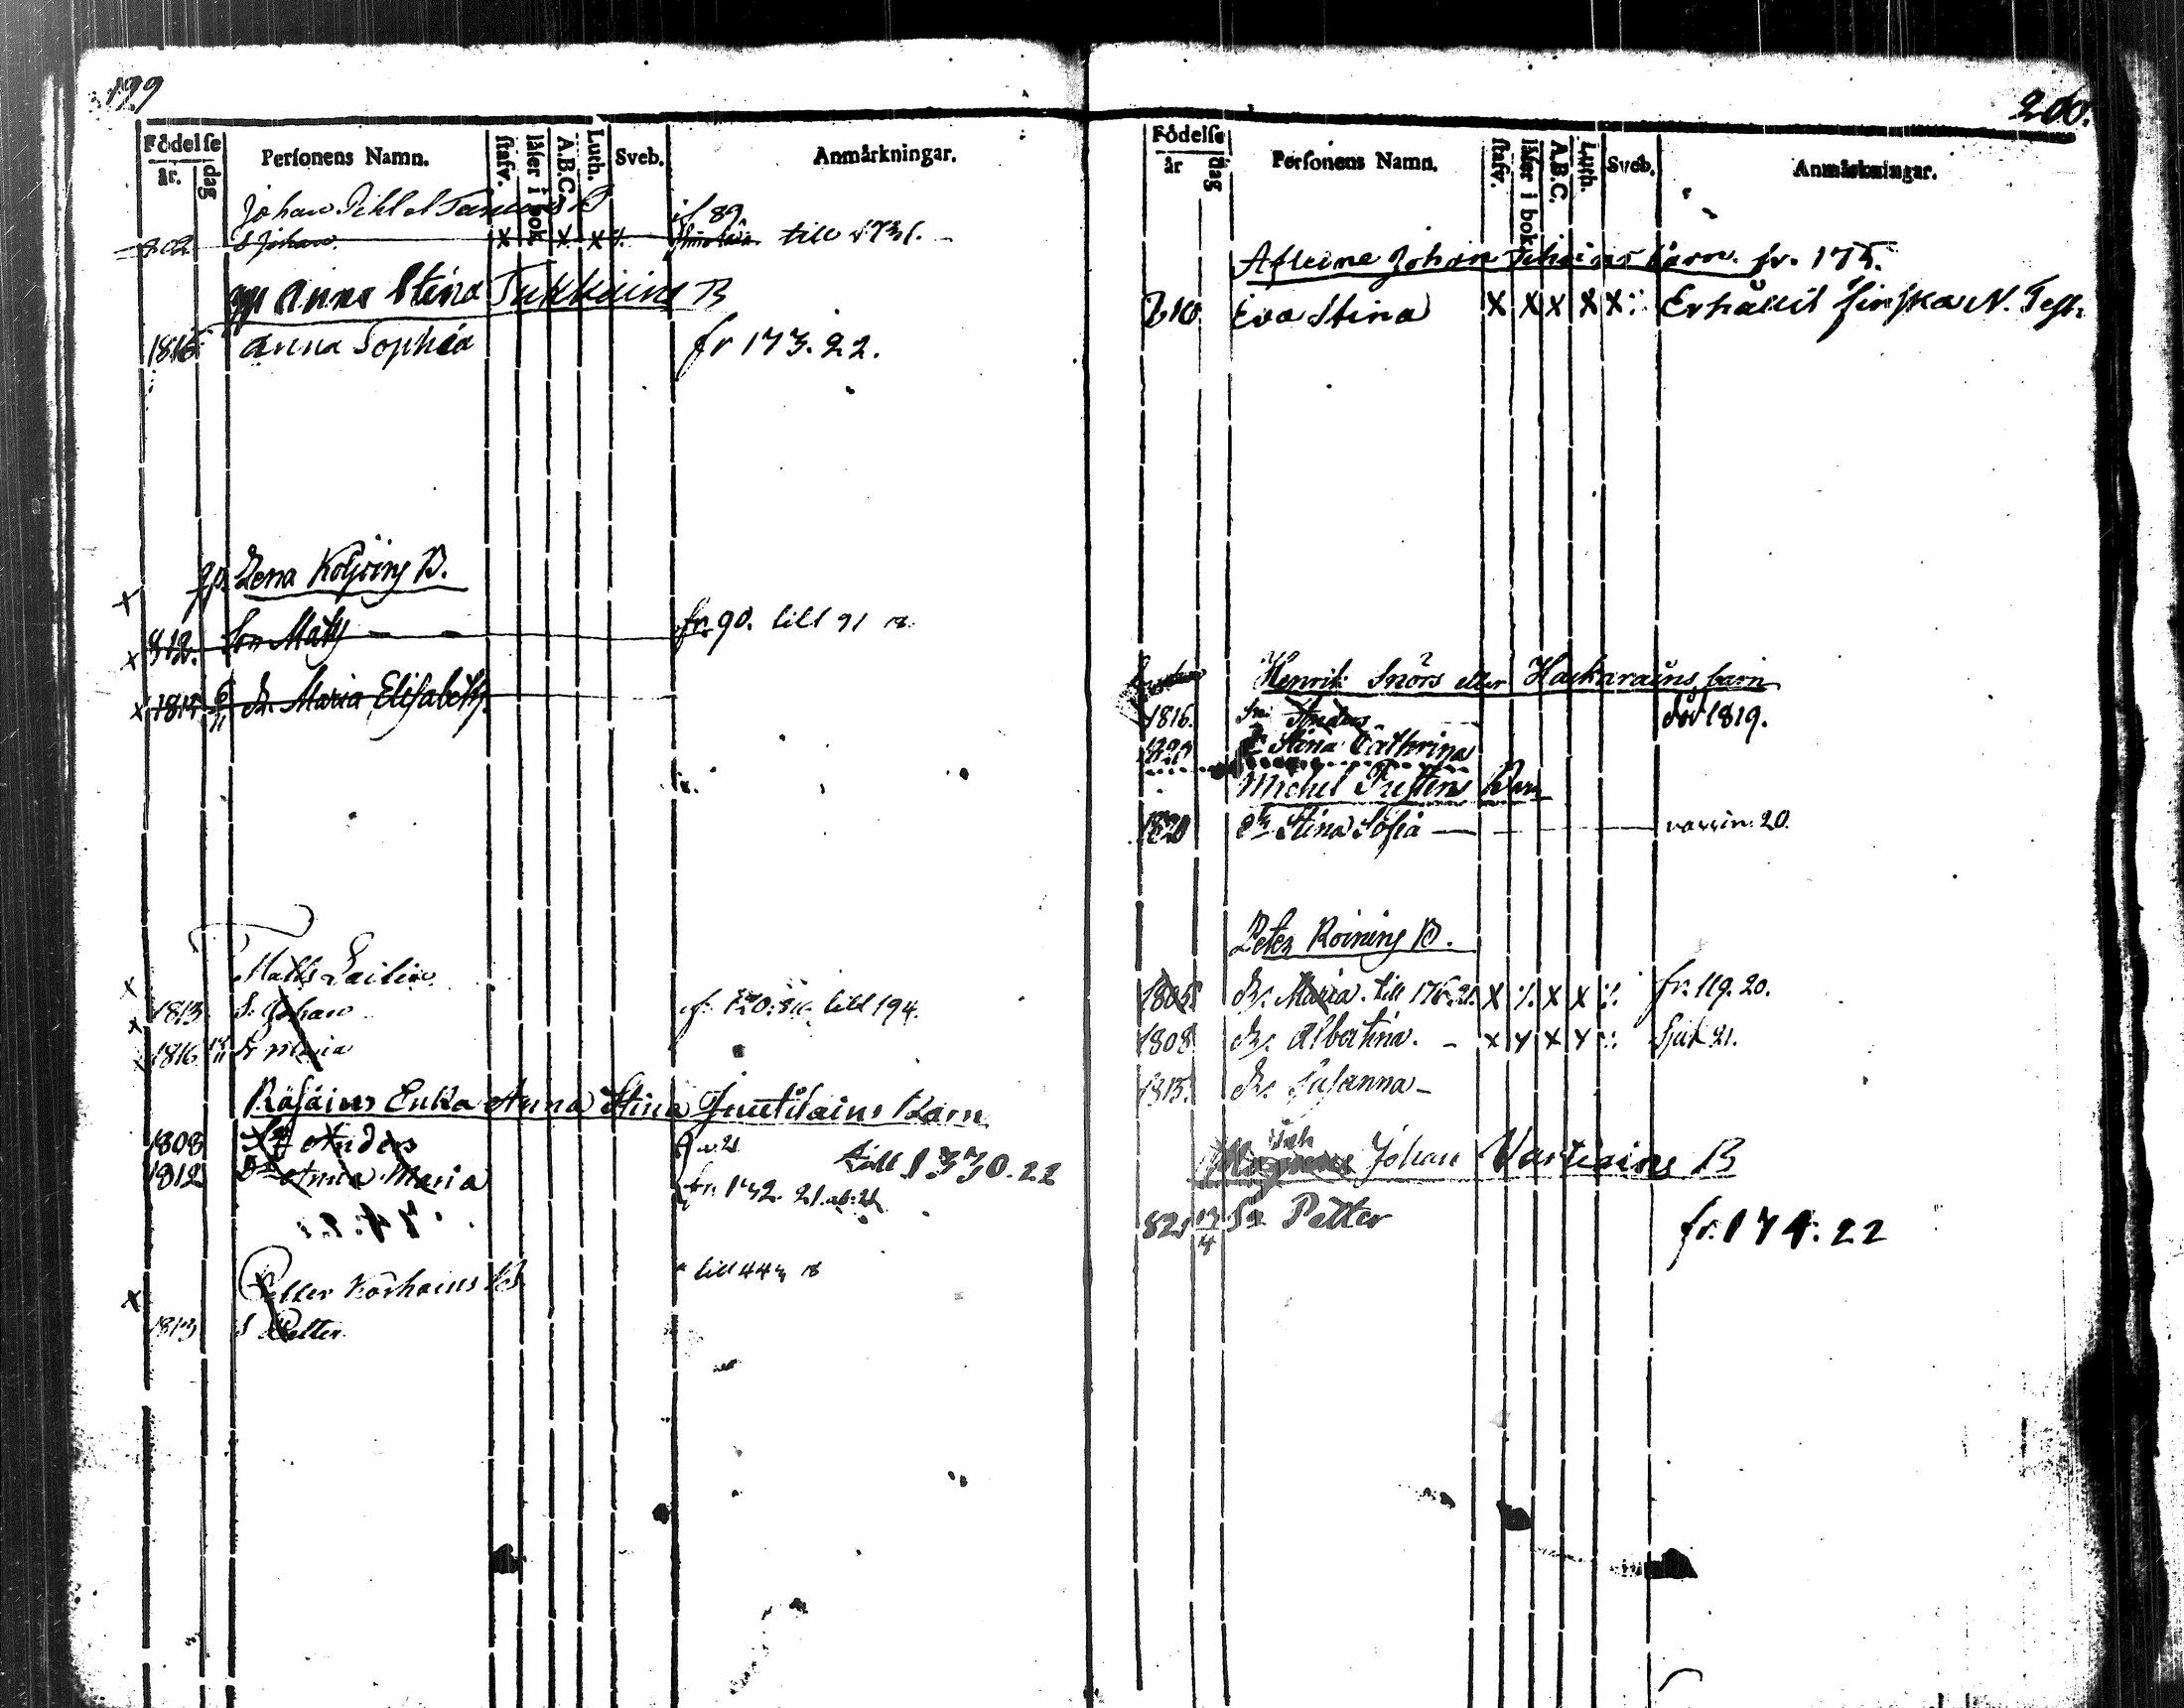 199
Födelse
år. dag
Personens Namn.
stafv.
läser i bok
A.B.C.
Luth.
Sveb.
Anmärkningar.
Johan B
802 S Johan x x x till 1731.
Anna Stina Tukkains B
1816 Anna Sophia fr 173.22.
Lena B.
812. son Mats fr. 90. till 91
1817 6/11 dr. Maria Elisabeth
Matts Laitin
1813 S: Johan till 194.
1816 Maria
Räsäins Enka Anna Stina Juutilains Barn
1808 Sn Anders
till 1330.22
1812 Dr Anna Maria fr. 132. 21.
Petter Korhoins B till 443
1813 S Petter
200.
Födelse
år dag
Personens Namn.
stafv.
läser i bok
A.B.C.
Luth.
Sveb.
Anmärkningar.
Afledne Johan barn. fr. 175.
810 Eva Stina x x x x x Erhållit finska N. Test.
Henrik Snörs eller Hackarains barn
1816. Sn Anders död 1819.
1820 Stina Cathrina
Michel Barn
1820 Stina Sofia vaccin. 20.
Peter Roining B.
1805 dr. Maria. till 176.21. x x x fr. 119. 20.
1808 dr. Albertina. x x x x sjuk 21.
1815. dr. Susanna
Johan Vartiains B
821 Sn Petter fr. 174: 22